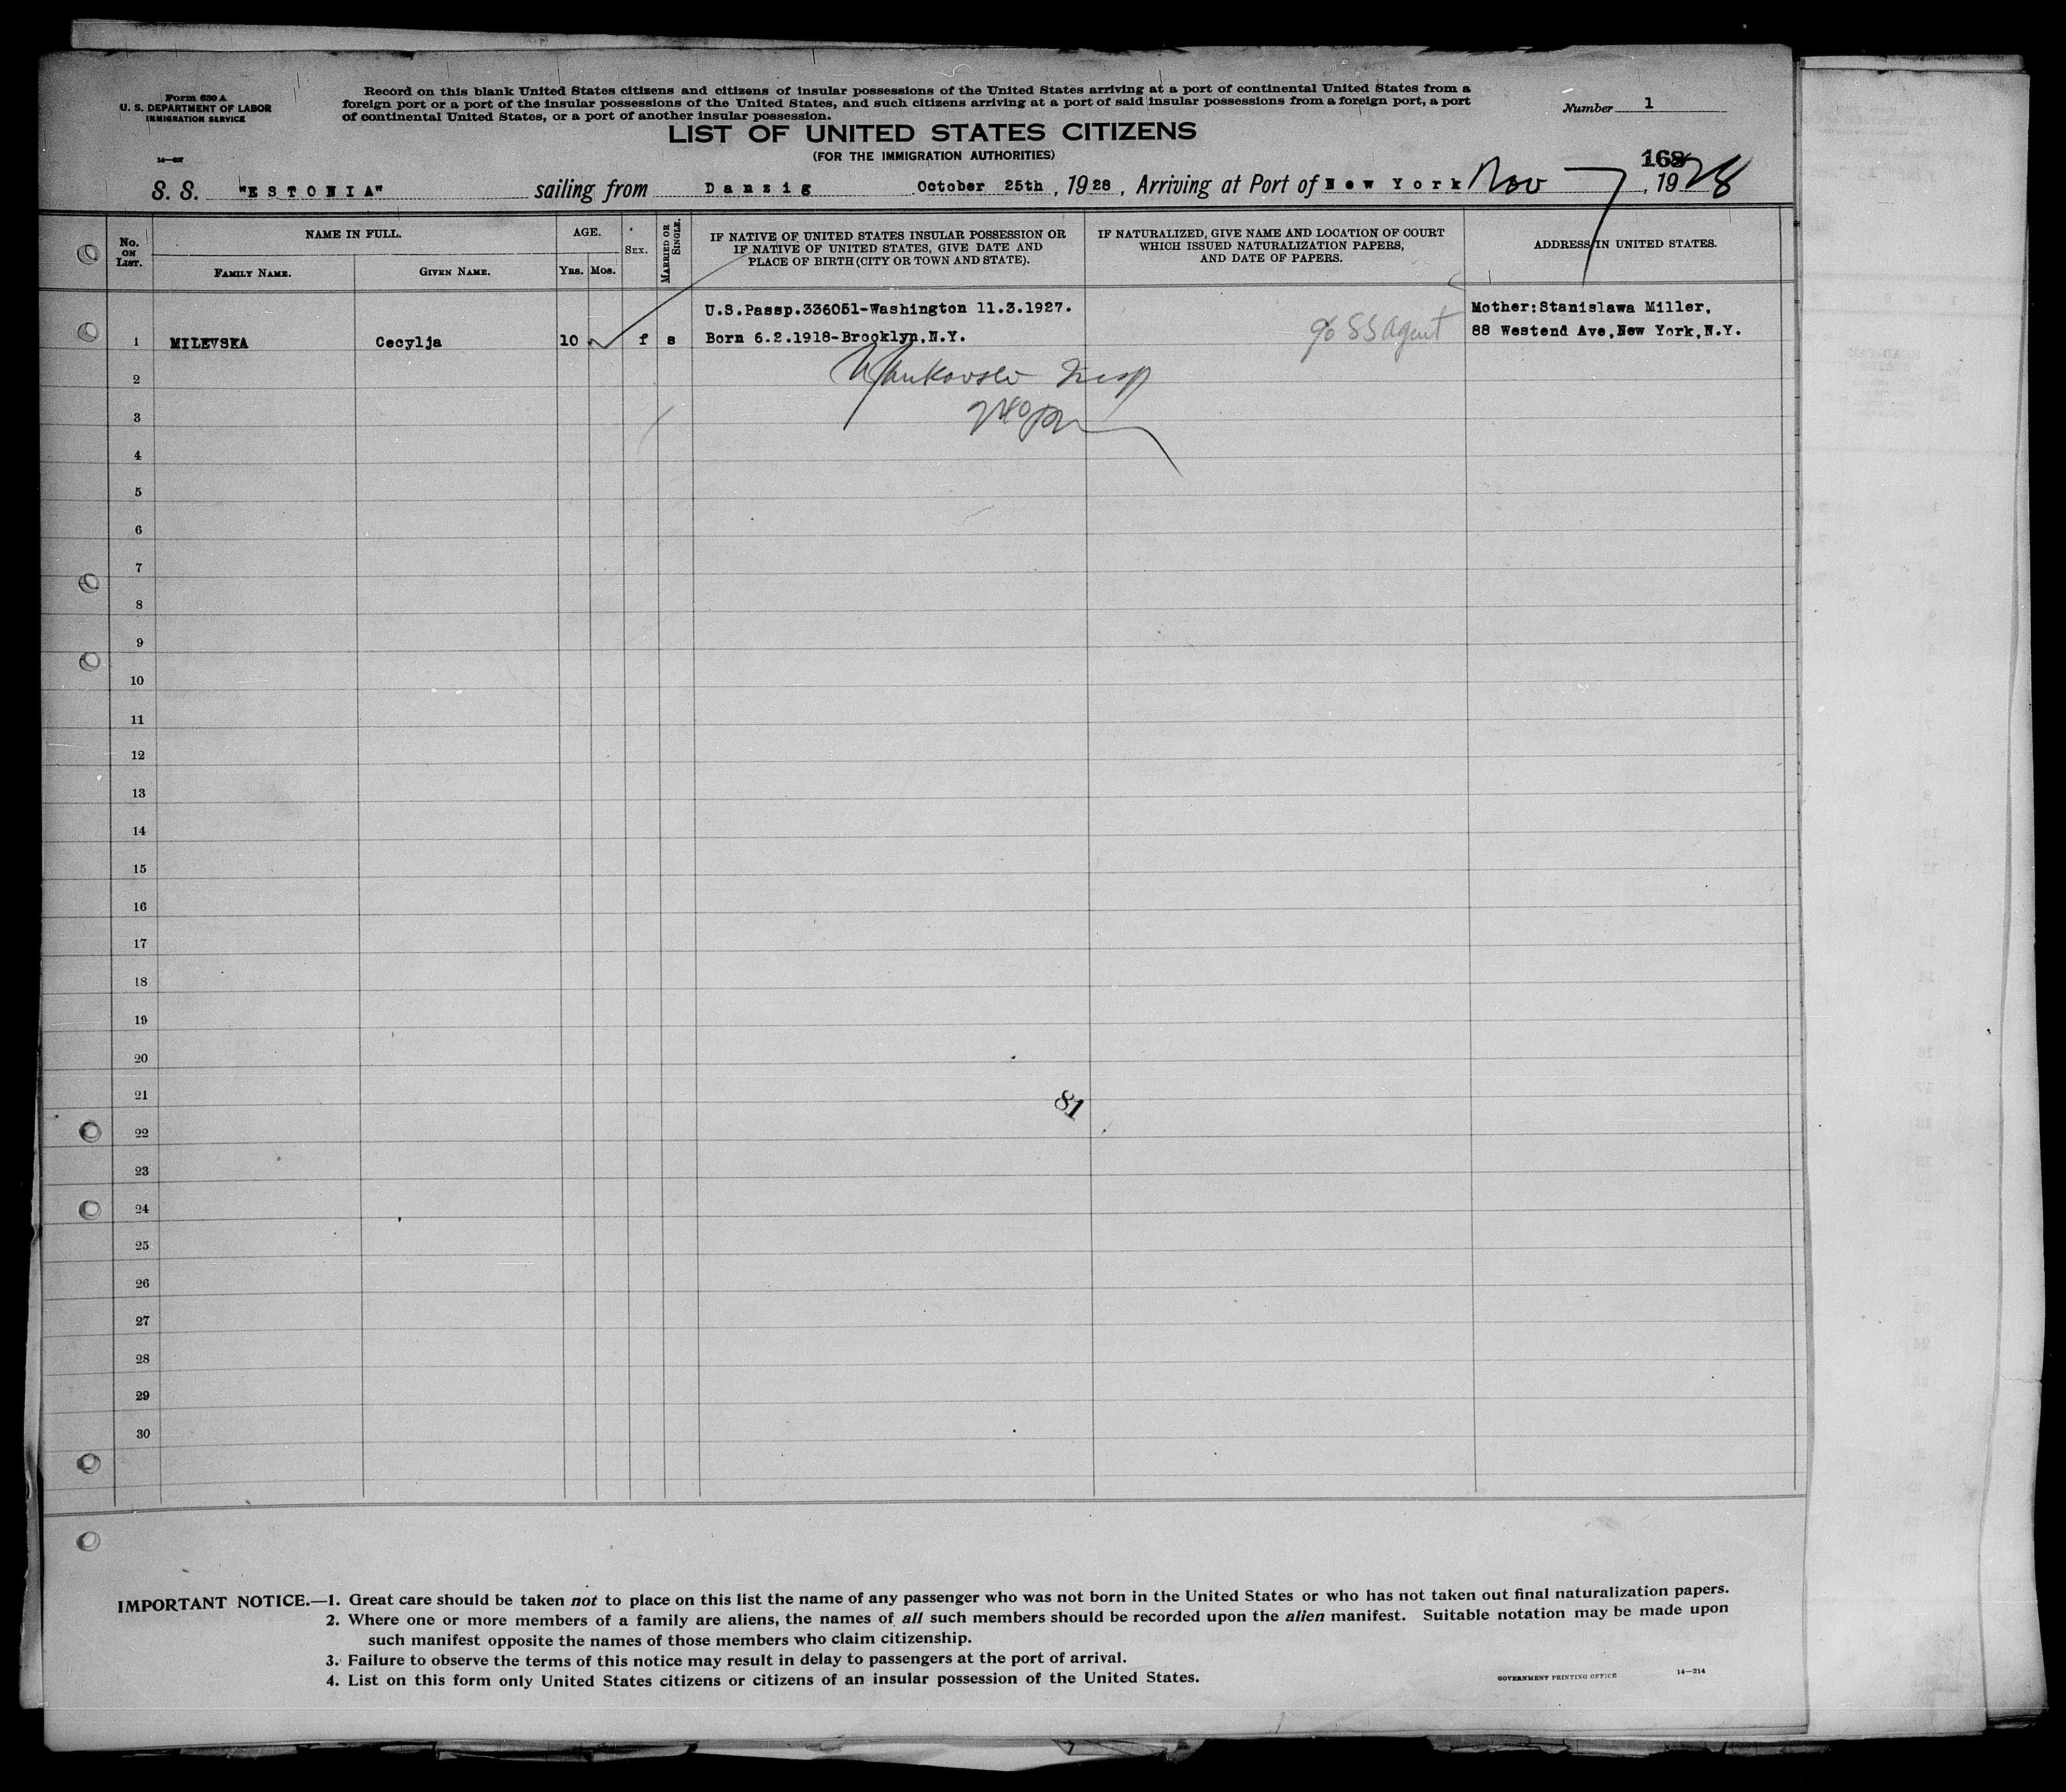 Form 630 A
U. S. DEPARTMENT OF LABOR
IMMIGRATION SERVICE
Record on this blank United States citizens and citizens of insular possessions of the United States arriving at a port of continental United States from a
foreign port or a port of the insular possessions of the United States, and such citizens arriving at a port of said insular possessions from a foreign port, a port
of continental United States, or a port of another insular possession.
Number 1
LIST OF UNITED STATES CITIZENS
(FOR THE IMMIGRATION AUTHORITIES)
168
S. S. "ESTONIA" sailing from Danzig October 25th, 1928, Arriving at Port of New York Nov 7, 1928
No. ON LIST.
NAME IN FULL.
FAMILY NAME.
GIVEN NAME.
AGE.
YRS. MOS.
SEX.
MARRIED OR SINGLE.
IF NATIVE OF UNITED STATES INSULAR POSSESSION OR
IF NATIVE OF UNITED STATES, GIVE DATE AND
PLACE OF BIRTH (CITY OR TOWN AND STATE).
IF NATURALIZED, GIVE NAME AND LOCATION OF COURT
WHICH ISSUED NATURALIZATION PAPERS,
AND DATE OF PAPERS.
ADDRESS IN UNITED STATES.
U.S.Passp.336051-Washington 11.3.1927. Mother:Stanislawa Miller,
1 MILEVSKA Cecylja 10 f s Born 6.2.1918-Brooklyn,N.Y. c/o SS Agent 88 Westend Ave,New York,N.Y.
2 Insp
3
4
5
6
7
8
9
10
11
12
13
14
15
16
17
18
19
20
21
81
22
23
24
25
26
27
28
29
30
IMPORTANT NOTICE.—1. Great care should be taken not to place on this list the name of any passenger who was not born in the United States or who has not taken out final naturalization papers.
2. Where one or more members of a family are aliens, the names of all such members should be recorded upon the alien manifest. Suitable notation may be made upon
such manifest opposite the names of those members who claim citizenship.
3. Failure to observe the terms of this notice may result in delay to passengers at the port of arrival.
4. List on this form only United States citizens or citizens of an insular possession of the United States.
GOVERNMENT PRINTING OFFICE 14—214